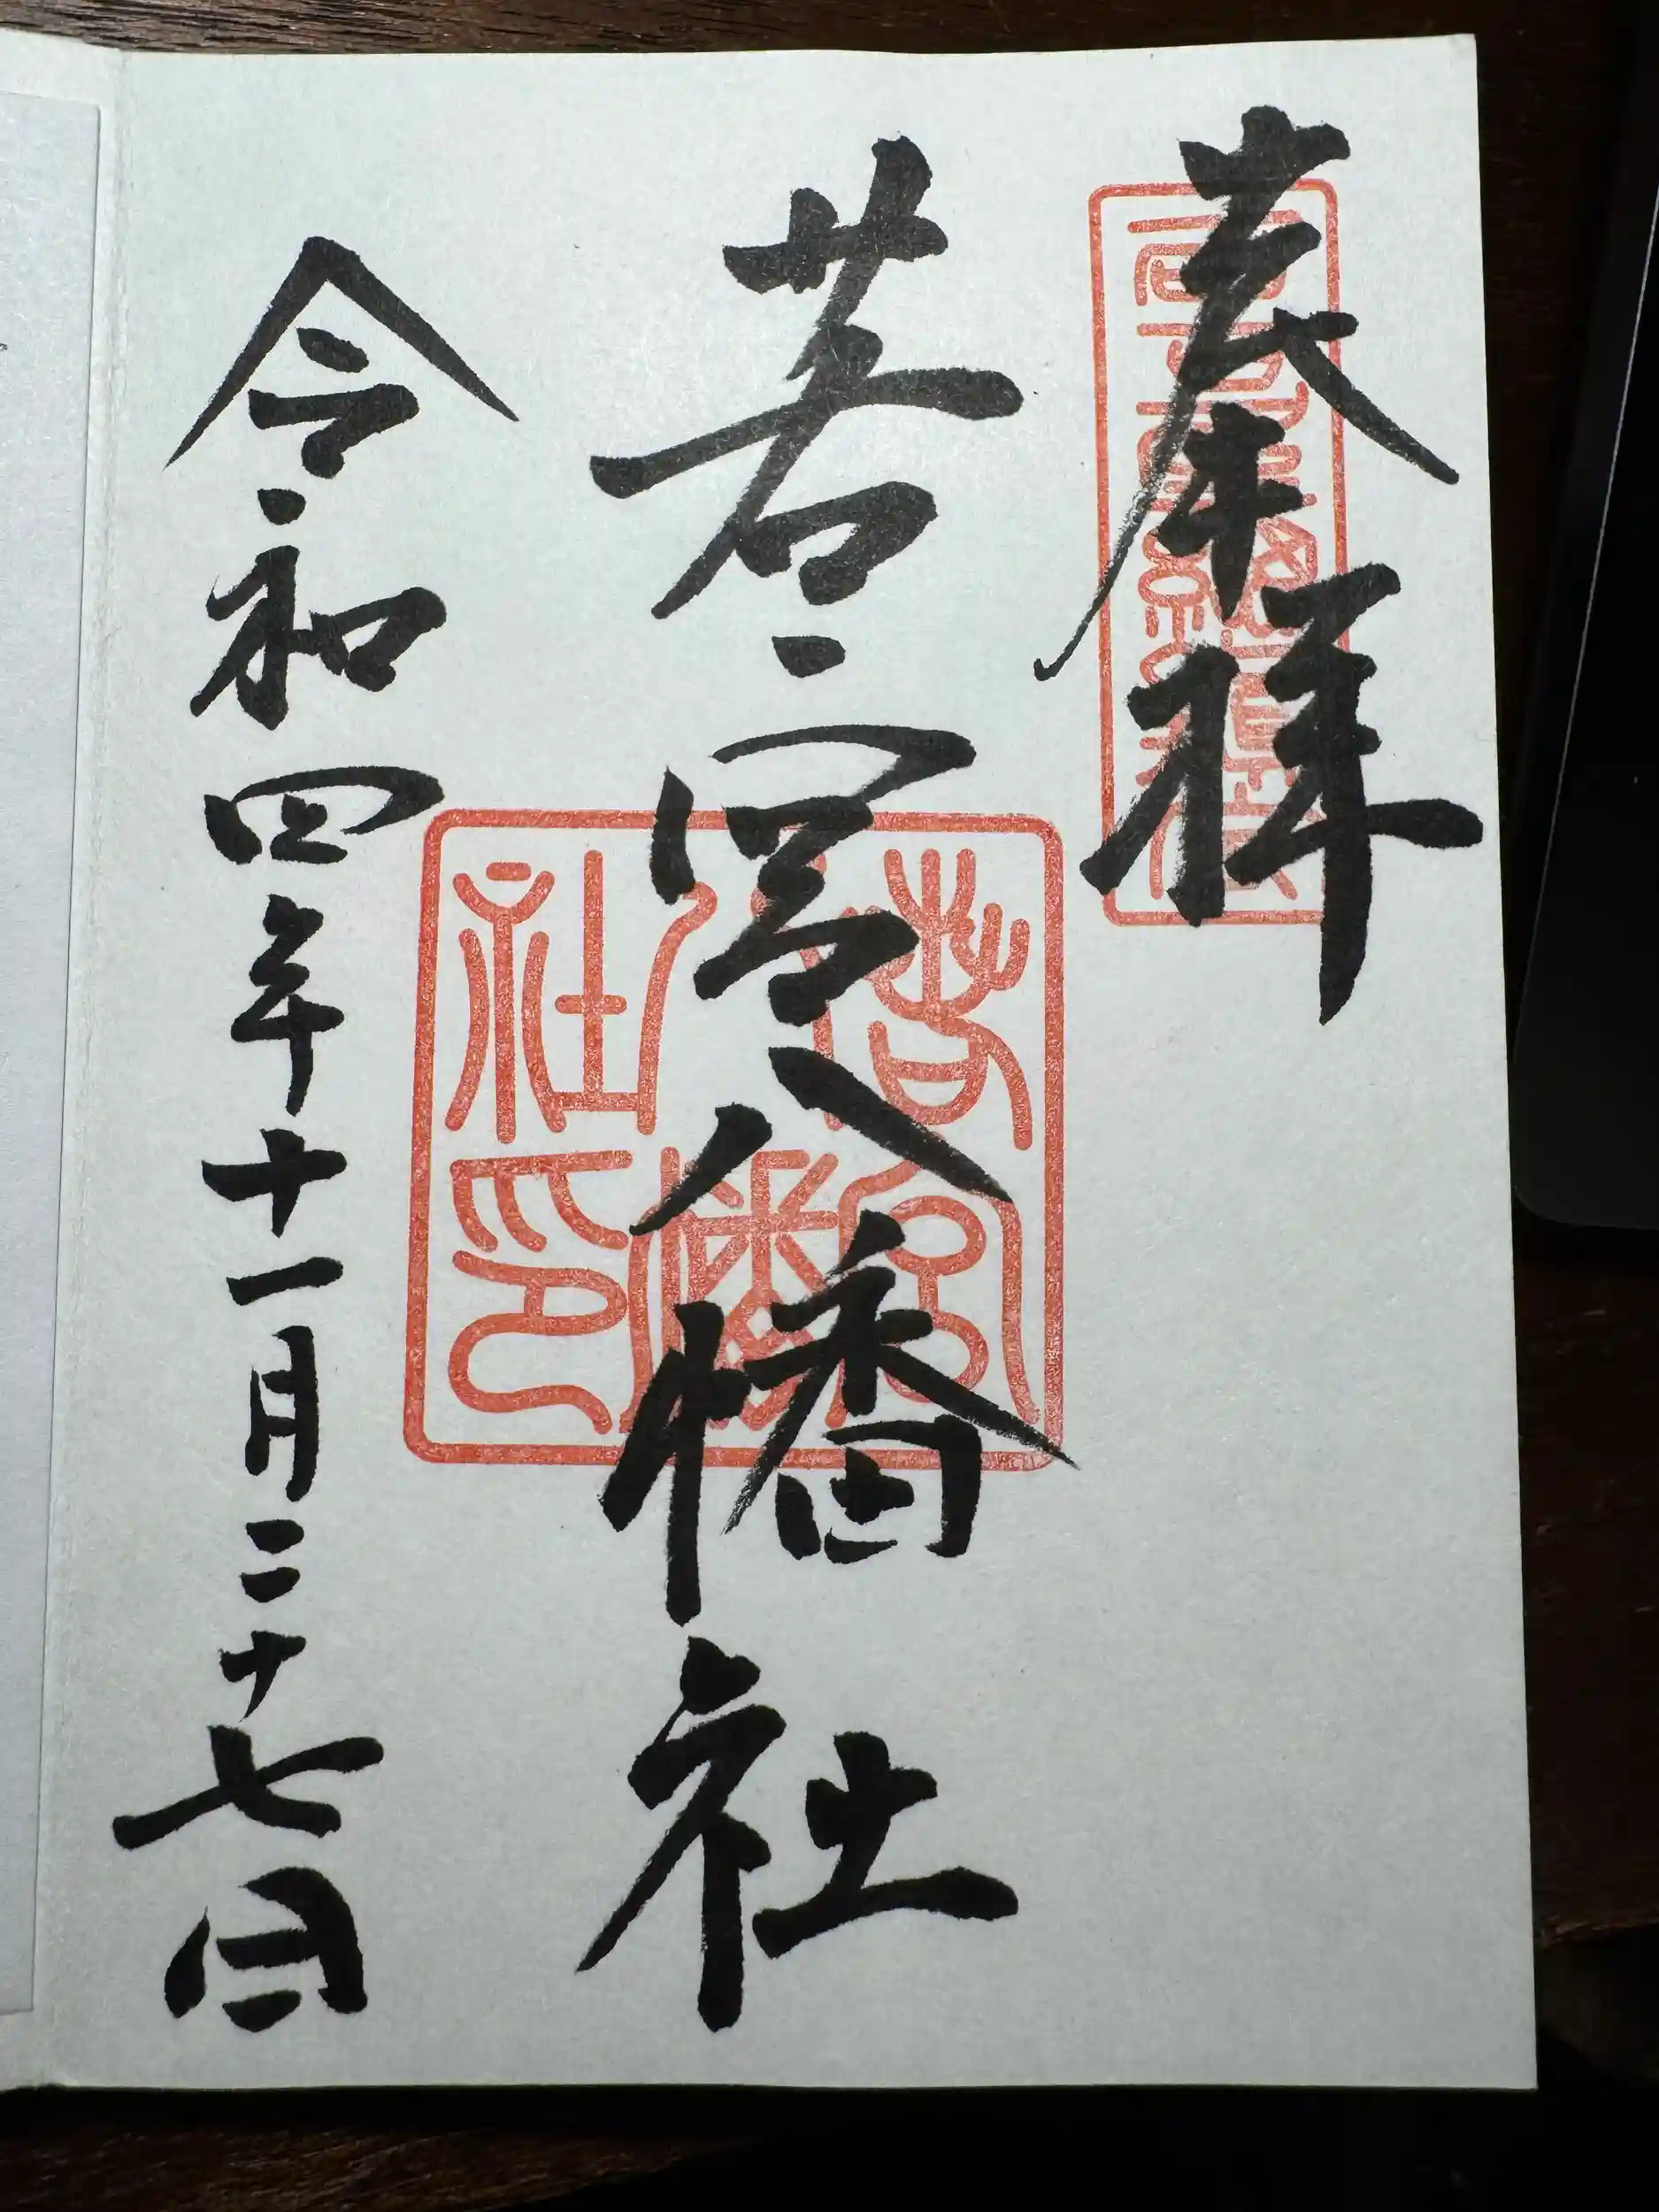 奉拝
若宮八幡社
令和四年十一月二十七日
若宮八幡社印